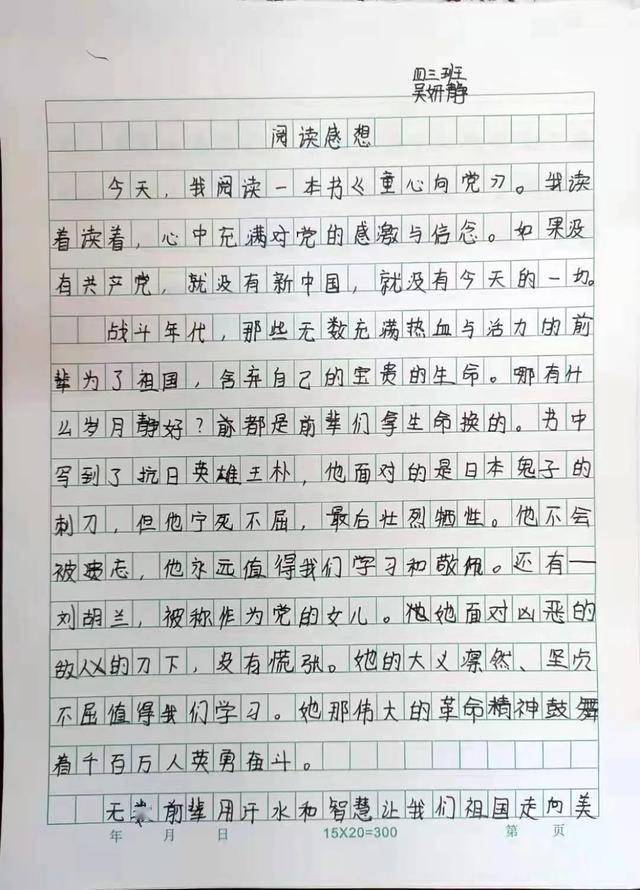 四三班
吴妍静
阅读感想
今天，我阅读一本书《童心向党》。我读
着读着，心中充满对党的感激与信念。如果没
有共产党，就没有新中国，就没有今天的一切。
战斗年代，那些无数充满热血与活力的前
辈为了祖国，舍弃自己的宝贵的生命。哪有什
么岁月静好？都是前辈们拿生命换的。书中
写到了抗日英雄王朴，他面对的是日本鬼子的
刺刀，但他宁死不屈，最后壮烈牺牲。他不会
被遗忘，他永远值得我们学习和敬佩。还有一
刘胡兰，被称作为党的女儿。她面对凶恶的
敌人的刀下，没有慌张。她的大义凛然、坚贞
不屈值得我们学习。她那伟大的革命精神鼓舞
着千百万人英勇奋斗。
无前辈用汗水和智慧让我们祖国走向美
年 月 日 15X20=300 第 页